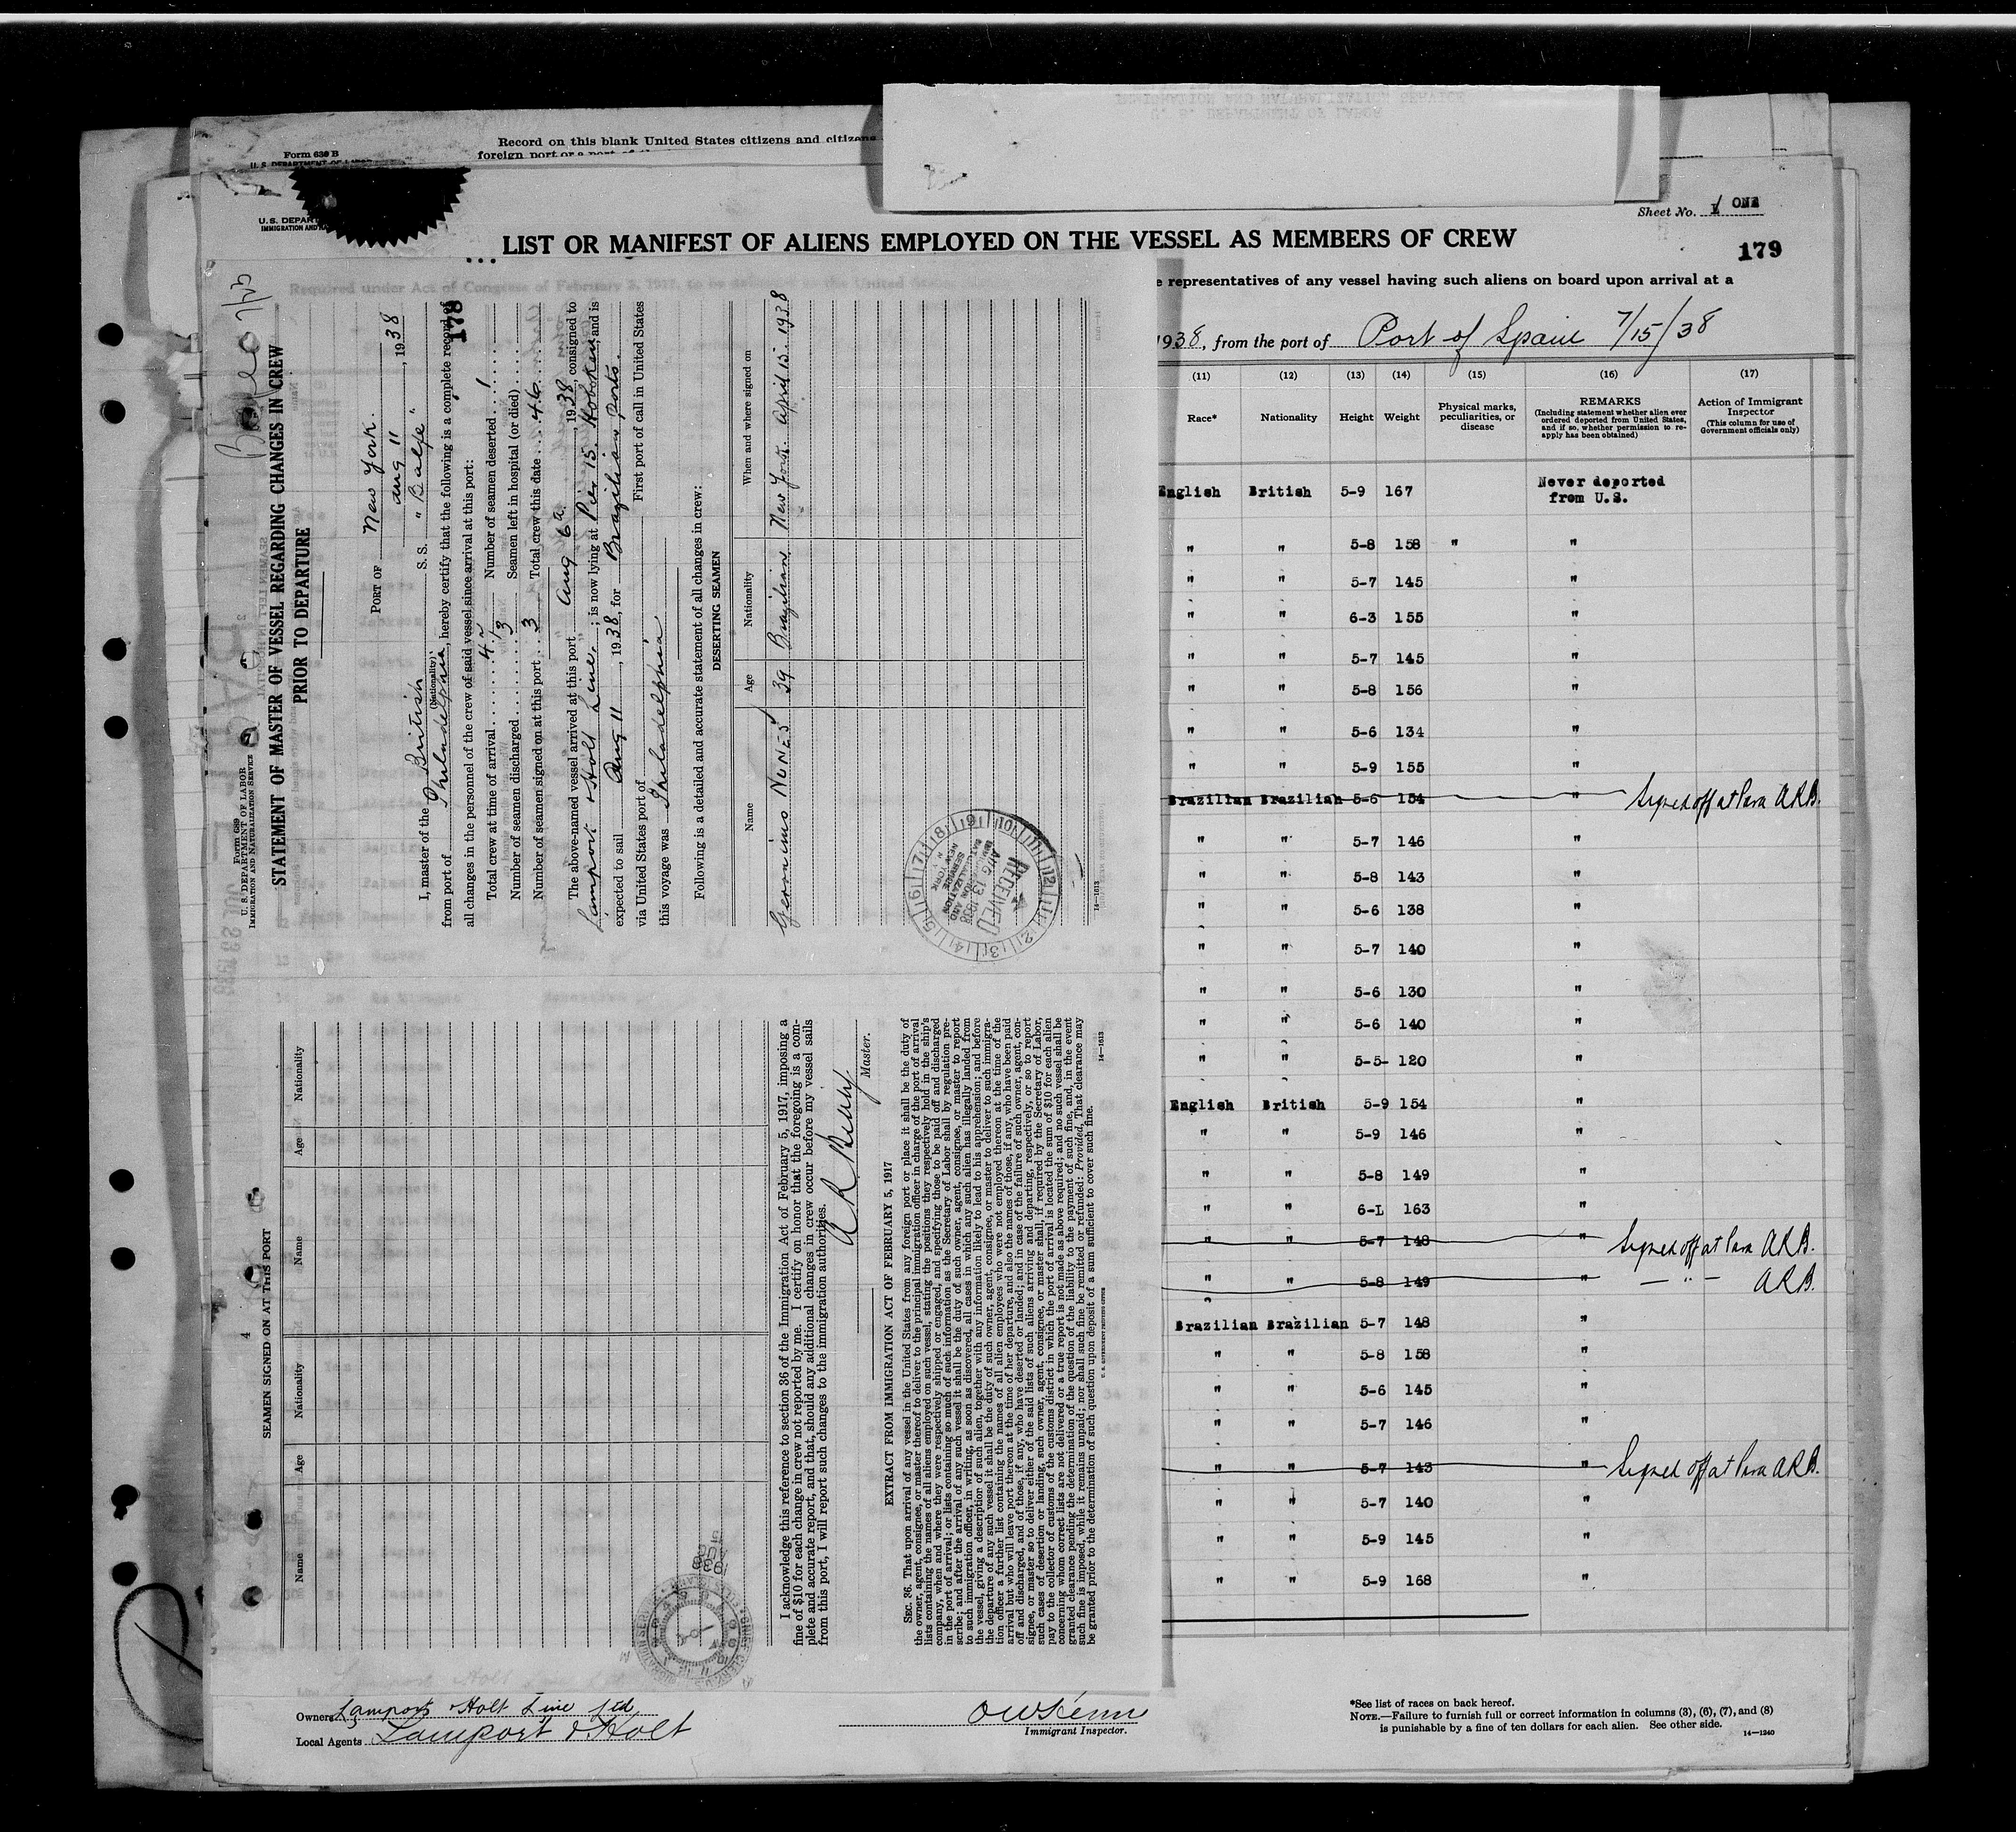 Form 630 B
Record on this blank United States citizens and citizens
Sheet No. 1 ONE
U. S. DEPAR
LIST OR MANIFEST OF ALIENS EMPLOYED ON THE VESSEL AS MEMBERS OF CREW
179
Required under Act of Congress of February 5, 1917, to be delivered to the United
e representatives of any vessel having such aliens on board upon arrival at a
1938, from the port of Port of Spain 7/15/38
(11) (12) (13) (14) (15) (16) (17)
Race* Nationality Height Weight Physical marks, peculiarities, or disease REMARKS (Including statement whether alien ever ordered deported from United States, and if so, whether permission to re-apply has been obtained) Action of Immigrant Inspector (This column for use of Government officials only)
English British 5-9 167 Never deported from U.S.
" " 5-8 158 " "
" " 5-7 145 "
" " 6-3 155 "
" " 5-7 145 "
" " 5-8 156 "
" " 5-6 134 "
" " 5-9 155 "
Brazilian Brazilian 5-6 154 " Signed off at Para ARB.
" " 5-7 146 "
" " 5-8 143 "
" " 5-6 138 "
" " 5-7 140 "
" " 5-6 130 "
" " 5-6 140 "
" " 5-5- 120 "
English British 5-9 154 "
" " 5-9 146 "
" " 5-8 149 "
" " 6-L 163 "
" " 5-7 148 " Signed off at Para ARB.
" " 5-8 149 " — " — ARB.
Brazilian Brazilian 5-7 148 "
" " 5-8 158 "
" " 5-6 145 "
" " 5-7 146 "
" " 5-7 143 " Signed off at Para ARB.
" " 5-7 140 "
" " 5-9 145 "
" " 5-9 168 "
178
Form 689
U. S. DEPARTMENT OF LABOR
IMMIGRATION AND NATURALIZATION SERVICE
STATEMENT OF MASTER OF VESSEL REGARDING CHANGES IN CREW
PRIOR TO DEPARTURE
PORT OF New York.
Aug 11, 1938
I, master of the British (Nationality) S. S. "Balfe"
from port of Philadelphia, hereby certify that the following is a complete record of
all changes in the personnel of the crew of said vessel since arrival at this port:
Total crew at time of arrival Number of seamen deserted 1
Number of seamen discharged 3 Seamen left in hospital (or died)
Number of seamen signed on at this port 3 Total crew this date 46
The above-named vessel arrived at this port Aug 6th, 1938, consigned to
Lamport & Holt Line; is now lying at Pier 15. Hoboken, and is
expected to sail Aug 11, 1938, for Brazilian Ports.
via United States port of First port of call in United States
this voyage was Philadelphia
Following is a detailed and accurate statement of all changes in crew:
DESERTING SEAMEN
Name Age Nationality When and where signed on
Geronimo NUNES 39 Brazilian New York. April 15. 1938
RECEIVED
AUG 13 1938
14—1613
SEAMEN SIGNED ON AT THIS PORT
4
Name Age Nationality Name Age Nationality
I acknowledge this reference to section 36 of the Immigration Act of February 5, 1917, imposing a
fine of $10 for each change in crew not reported by me. I certify on honor that the foregoing is a com-
plete and accurate report, and that, should any additional changes in crew occur before my vessel sails
from this port, I will report such changes to the immigration authorities.
Master.
EXTRACT FROM IMMIGRATION ACT OF FEBRUARY 5, 1917
SEC. 36. That upon arrival of any vessel in the United States from any foreign port or place it shall be the duty of
the owner, agent, consignee, or master thereof to deliver to the principal immigration officer in charge of the port of arrival
lists containing the names of all aliens employed on such vessel, stating the positions they respectively hold in the ship's
company, when and where they were respectively shipped or engaged, and specifying those to be paid off and discharged
in the port of arrival; or lists containing so much of such information as the Secretary of Labor shall by regulation pre-
scribe; and after the arrival of any such vessel it shall be the duty of such owner, agent, consignee, or master to report
to such immigration officer, in writing, as soon as discovered, all cases in which any such alien has illegally landed from
the vessel, giving a description of such alien, together with any information likely to lead to his apprehension; and before
the departure of any such vessel it shall be the duty of such owner, agent, consignee, or master to deliver to such immigra-
tion officer a further list containing the names of all alien employees who were not employed thereon at the time of the
arrival but who will leave port thereon at the time of her departure, and also the names of those, if any, who have been paid
off and discharged, and of those, if any, who have deserted or landed; and in case of the failure of such owner, agent, con-
signee, or master so to deliver either of the said lists of such aliens arriving and departing, respectively, or so to report
such cases of desertion or landing, such owner, agent, consignee, or master shall, if required by the Secretary of Labor,
pay to the collector of customs of the customs district in which the port of arrival is located the sum of $10 for each alien
concerning whom correct lists are not delivered or a true report is not made as above required; and no such vessel shall be
granted clearance pending the determination of the question of the liability to the payment of such fine, and, in the event
such fine is imposed, while it remains unpaid; nor shall such fine be remitted or refunded: Provided, That clearance may
be granted prior to the determination of such question upon deposit of a sum sufficient to cover such fine.
14—1613
Owners Lamport & Holt Line Ltd
Local Agents Lamport & Holt
Immigrant Inspector.
*See list of races on back hereof.
NOTE.—Failure to furnish full or correct information in columns (3), (6), (7), and (8)
is punishable by a fine of ten dollars for each alien. See other side.
14—1240